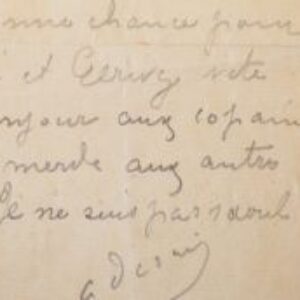 nne chance pour
i et Ecrivez vite
njour aux copain
merde aux autres
Je ne suis pas saoul